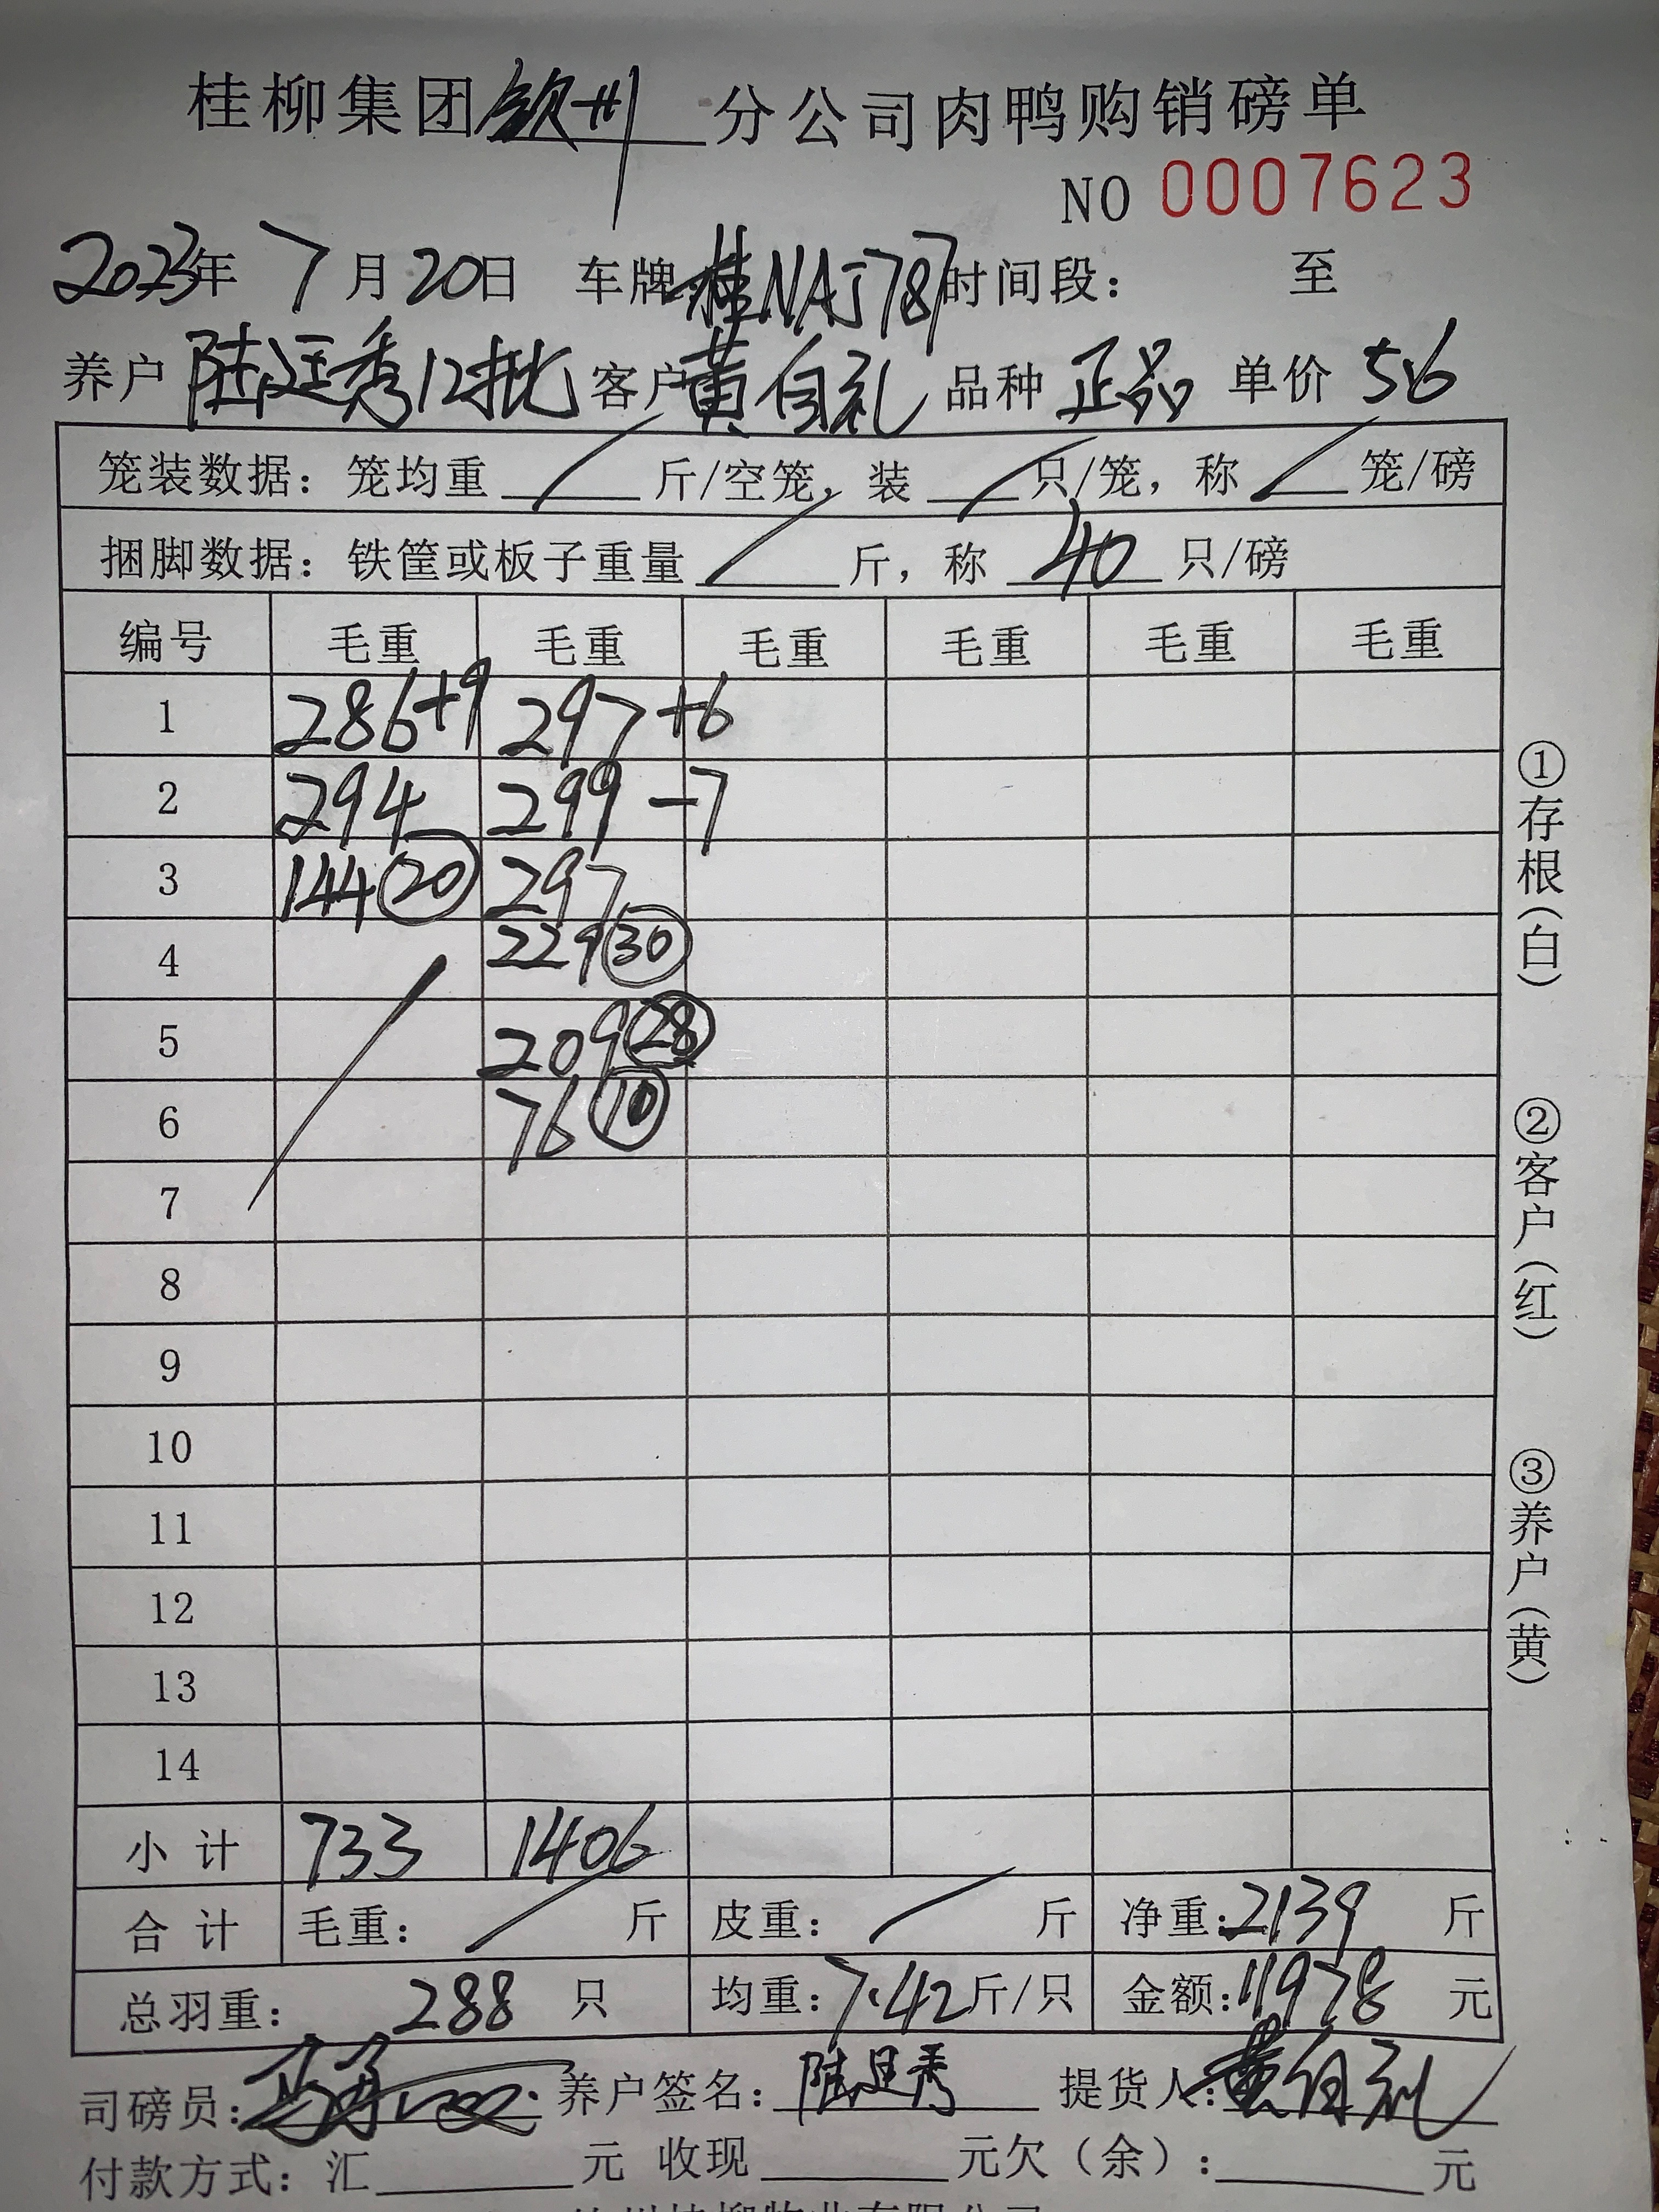 桂柳集团钦州分公司肉鸭购销磅单
NO 0007623
2023年 7月20日 车牌桂NAJ787时间段： 至
养户 陆廷秀12批 客户黄自礼 品种 正品 单价 5.6
笼装数据：笼均重 斤/空笼，装 只/笼，称 笼/磅
捆脚数据：铁筐或板子重量 斤，称 40 只/磅
编号 毛重 毛重 毛重 毛重 毛重 毛重
1 286+9 297+6
2 294 299-7
3 144 20 297
4 229 30
5 209 28
6 76 10
7
8
9
10
11
12
13
14
小计 733 1406
合计 毛重： 斤 皮重： 斤 净重：2139 斤
总羽重： 288 只 均重：7.42斤/只 金额：11978 元
司磅员： 养户签名：陆廷秀 提货人：黄自礼
付款方式：汇 元 收现 元欠（余）： 元
①存根（白）
②客户（红）
③养户（黄）